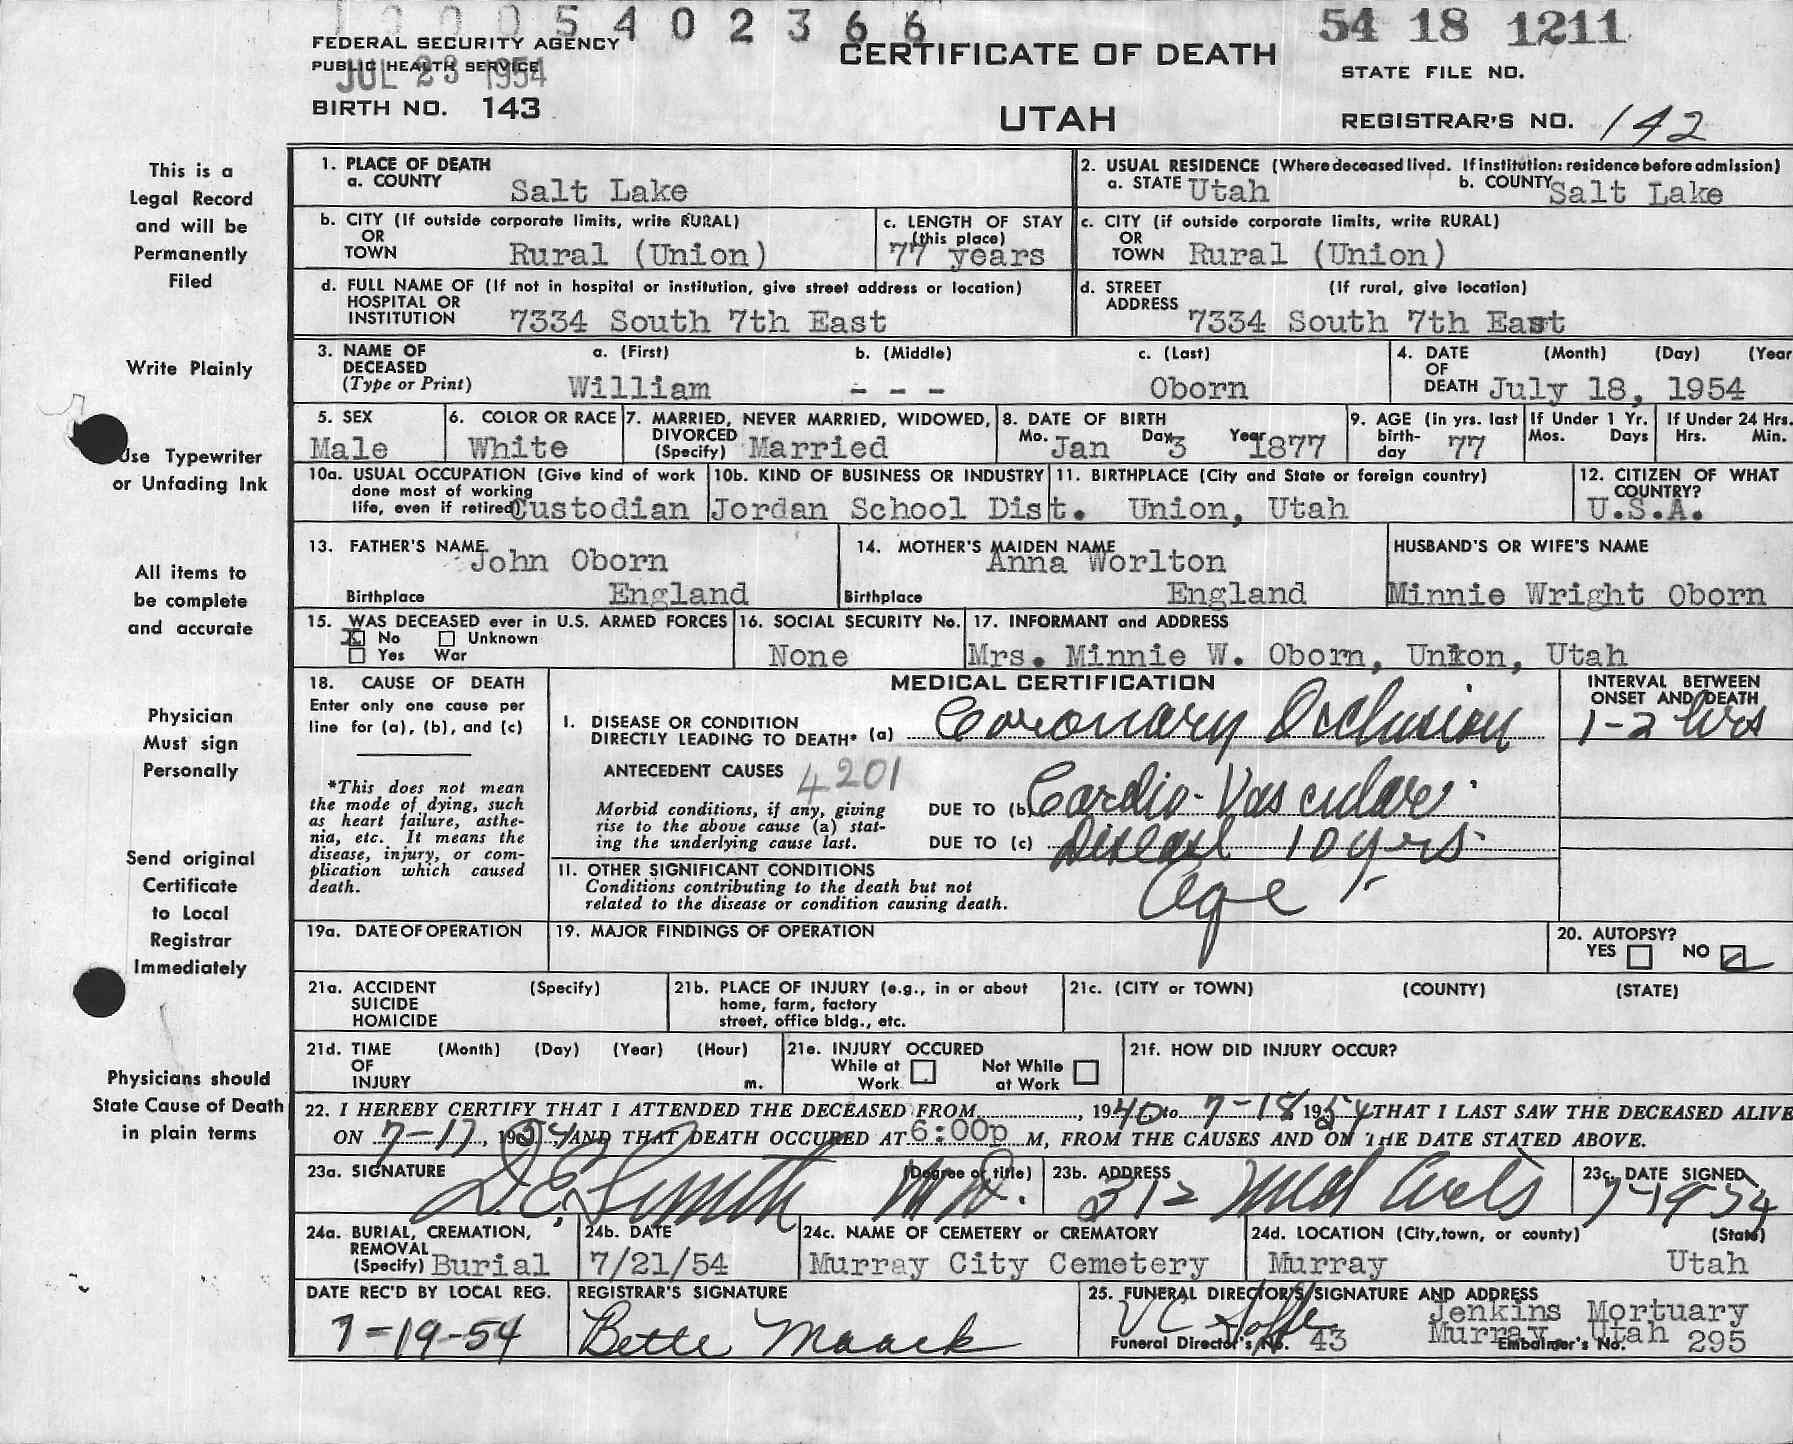 10005402366
54 18 1211
FEDERAL SECURITY AGENCY
PUBLIC HEALTH SERVICE
JUL 23 1954
CERTIFICATE OF DEATH
STATE FILE NO.
BIRTH NO. 143
UTAH
REGISTRAR'S NO. 142
This is a
Legal Record
and will be
Permanently
Filed
Write Plainly
Use Typewriter
or Unfading Ink
All items to
be complete
and accurate
Physician
Must sign
Personally
Send original
Certificate
to Local
Registrar
Immediately
Physicians should
State Cause of Death
in plain terms
1. PLACE OF DEATH
a. COUNTY Salt Lake
2. USUAL RESIDENCE (Where deceased lived. If institution: residence before admission)
a. STATE Utah b. COUNTY Salt Lake
b. CITY (If outside corporate limits, write RURAL)
OR
TOWN Rural (Union)
c. LENGTH OF STAY
(this place)
77 years
c. CITY (if outside corporate limits, write RURAL)
OR
TOWN Rural (Union)
d. FULL NAME OF (If not in hospital or institution, give street address or location)
HOSPITAL OR
INSTITUTION 7334 South 7th East
d. STREET (If rural, give location)
ADDRESS
7334 South 7th East
3. NAME OF DECEASED (Type or Print)
a. (First) b. (Middle) c. (Last)
William - - - Oborn
4. DATE OF DEATH (Month) (Day) (Year
July 18, 1954
5. SEX
Male
6. COLOR OR RACE
White
7. MARRIED, NEVER MARRIED, WIDOWED,
DIVORCED
(Specify) Married
8. DATE OF BIRTH
Mo. Jan Day 3 Year 1877
9. AGE (in yrs. last
birth-
day 77
If Under 1 Yr.
Mos. Days
If Under 24 Hrs.
Hrs. Min.
10a. USUAL OCCUPATION (Give kind of work
done most of working
life, even if retired) Custodian
10b. KIND OF BUSINESS OR INDUSTRY
Jordan School Dist.
11. BIRTHPLACE (City and State or foreign country)
Union, Utah
12. CITIZEN OF WHAT
COUNTRY?
U.S.A.
13. FATHER'S NAME
John Oborn
Birthplace England
14. MOTHER'S MAIDEN NAME
Anna Worlton
Birthplace England
HUSBAND'S OR WIFE'S NAME
Minnie Wright Oborn
15. WAS DECEASED ever in U.S. ARMED FORCES
X No Unknown
Yes War
16. SOCIAL SECURITY No.
None
17. INFORMANT and ADDRESS
Mrs. Minnie W. Oborn, Union, Utah
18. CAUSE OF DEATH
Enter only one cause per
line for (a), (b), and (c)
*This does not mean
the mode of dying, such
as heart failure, asthe-
nia, etc. It means the
disease, injury, or com-
plication which caused
death.
MEDICAL CERTIFICATION
INTERVAL BETWEEN
ONSET AND DEATH
I. DISEASE OR CONDITION
DIRECTLY LEADING TO DEATH* (a) Coronary Occlusion 1-2 hrs
ANTECEDENT CAUSES 4201
Morbid conditions, if any, giving
rise to the above cause (a) stat-
ing the underlying cause last.
DUE TO (b) Cardio-Vascular
DUE TO (c) Disease 10 yrs.
II. OTHER SIGNIFICANT CONDITIONS
Conditions contributing to the death but not
related to the disease or condition causing death.
Age
19a. DATE OF OPERATION
19. MAJOR FINDINGS OF OPERATION
20. AUTOPSY?
YES NO
21a. ACCIDENT (Specify)
SUICIDE
HOMICIDE
21b. PLACE OF INJURY (e.g., in or about
home, farm, factory
street, office bldg., etc.
21c. (CITY or TOWN) (COUNTY) (STATE)
21d. TIME (Month) (Day) (Year) (Hour)
OF
INJURY m.
21e. INJURY OCCURED
While at Work
Not While at Work
21f. HOW DID INJURY OCCUR?
22. I HEREBY CERTIFY THAT I ATTENDED THE DECEASED FROM , 1940 to 7-18 1954 THAT I LAST SAW THE DECEASED ALIVE
ON 7-17, 1954, AND THAT DEATH OCCURED AT 6:00p M, FROM THE CAUSES AND ON THE DATE STATED ABOVE.
23a. SIGNATURE (Degree or title)
D. E. Smith M.D.
23b. ADDRESS
312 Med Arts
23c. DATE SIGNED
7-1954
24a. BURIAL, CREMATION,
REMOVAL
(Specify) Burial
24b. DATE
7/21/54
24c. NAME OF CEMETERY or CREMATORY
Murray City Cemetery
24d. LOCATION (City, town, or county) (State)
Murray Utah
DATE REC'D BY LOCAL REG.
7-19-54
REGISTRAR'S SIGNATURE
Bette Maack
25. FUNERAL DIRECTOR'S SIGNATURE AND ADDRESS
Jenkins Mortuary
Murray, Utah
Funeral Director's No. 43
Embalmer's No. 295